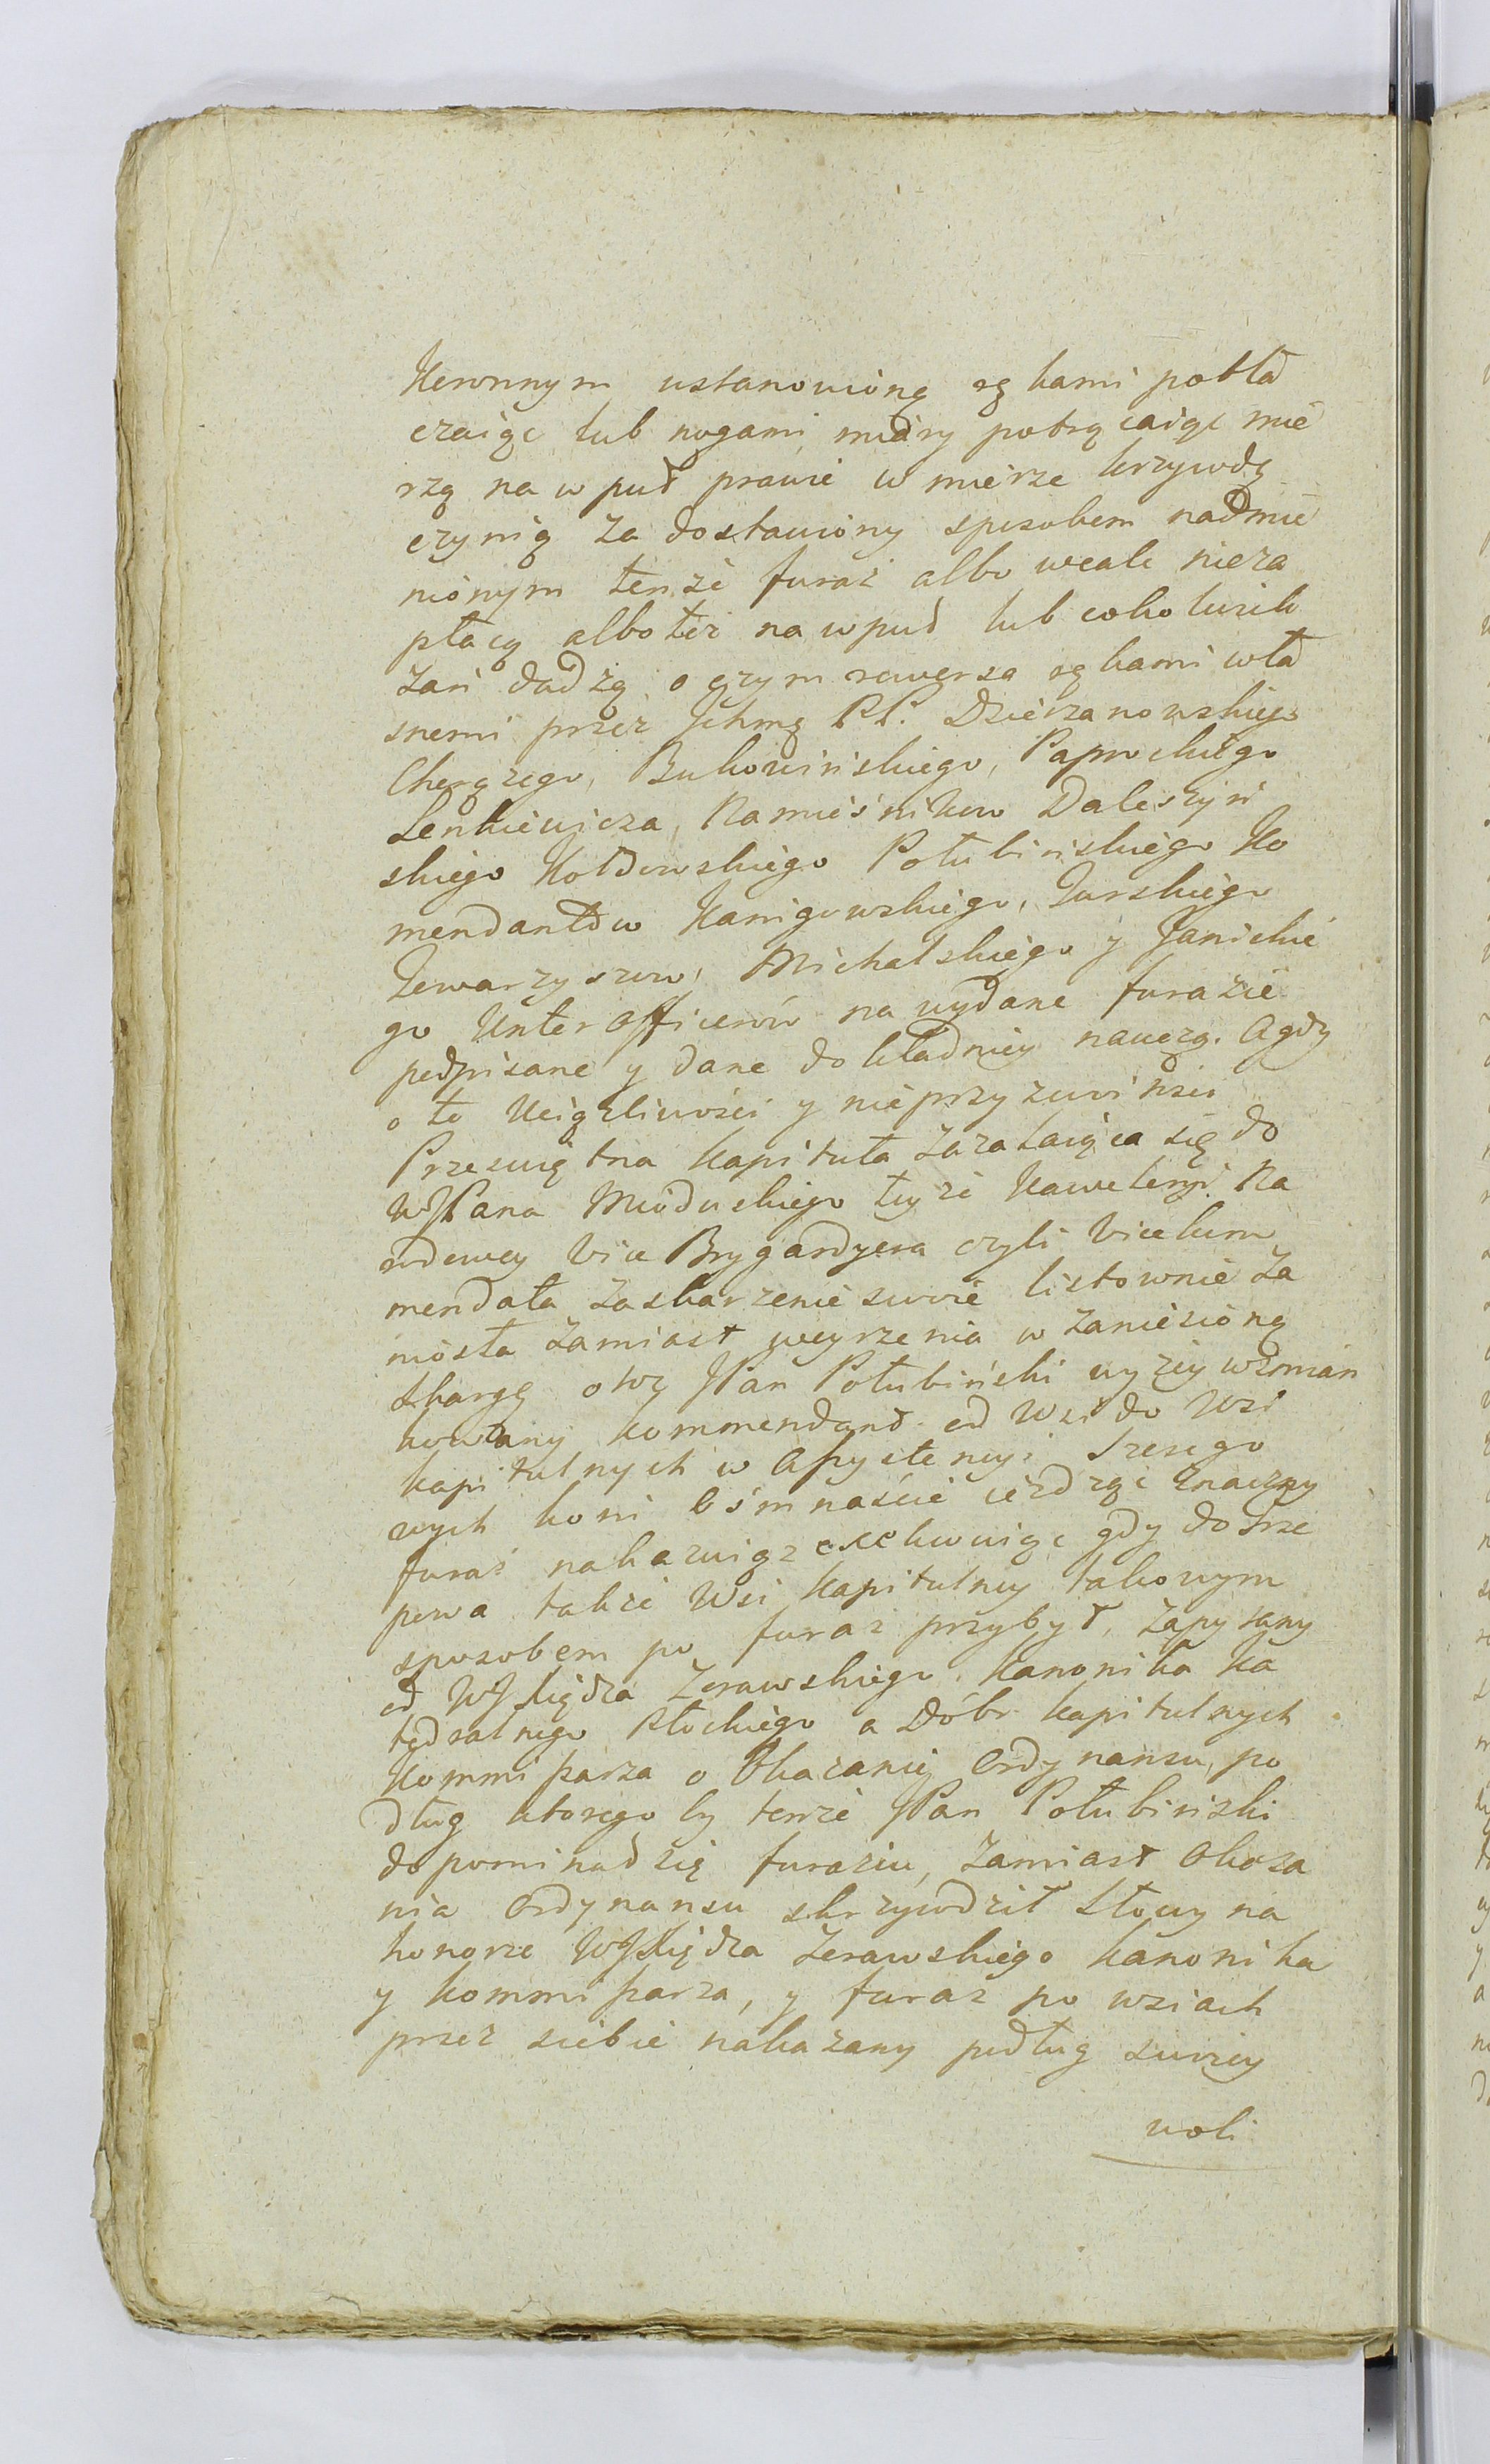 Kennnym ustanowioną rękami pokład
czaiąc lub nogami miary potrącaiąc mie
rzą na w puł prawie w mierze krzywdę
czynią Za dostawiony sposobem nadmie
nionym tenże furaż albo wcale nieza
płacą albo też na wpuł lub cokolwiek
Zań dadzą o czym rewersa rękami wła
snemi przez Jchmę PP. Dzierzanowskiego
Chorązego, Bukowińskiego, Paprockiego
Lenkiewicza, Namieśnikow Daleszyń
skiego Kołdowskiego Połubińskiego Ko
mendantow Kanigowskiego, Turskiego
Towarzyszow, Michalskiego y Janickie
go Unterofficerów na wydane furaże
podpisane y dane dokładniey nauczą. A gdy
o te Uciązliwości y nieprzyzwoitości
Przeswiętna Kapituła Zazalaiąca się do
WJPana Mioduskiego teyże Kawaleryi Na
rodowey Vice Brygardyera czyli Vicekom
mendata Zaskarzenie swoie listownie Za
niosła Zamiast weyrzenia w Zaniesioną
Skargę otoż JPan Połubiński wyżey wzmian
kowany kommendant od Wsi do Wsi
kapitulnych w Assystencyi Szesego
wych koni Ośmnaście ieżdżąc Znaczny
furaż nakazuiąc exekwuiąc gdy do Srze
powa także Wsi Kapitulney takowym
sposobem po furaż przybył, Zapytany
od WJXiędza Zerawskiego Kanonika Ka
tedralnego Płockiego a Dóbr kapitulnych
Kommissarza o Okazanie Ordynansu, po
dług ktorego by tenże JPan Połubiński
dopominał się furaziu, Zamiast Okaza
nia Ordynansu skrzywdził Słowy na
honorze WJXiędza Zerawskiego kanonika
y kommissarza, y furaż po wsiach
przez siebie nakazany podług swoiey
woli